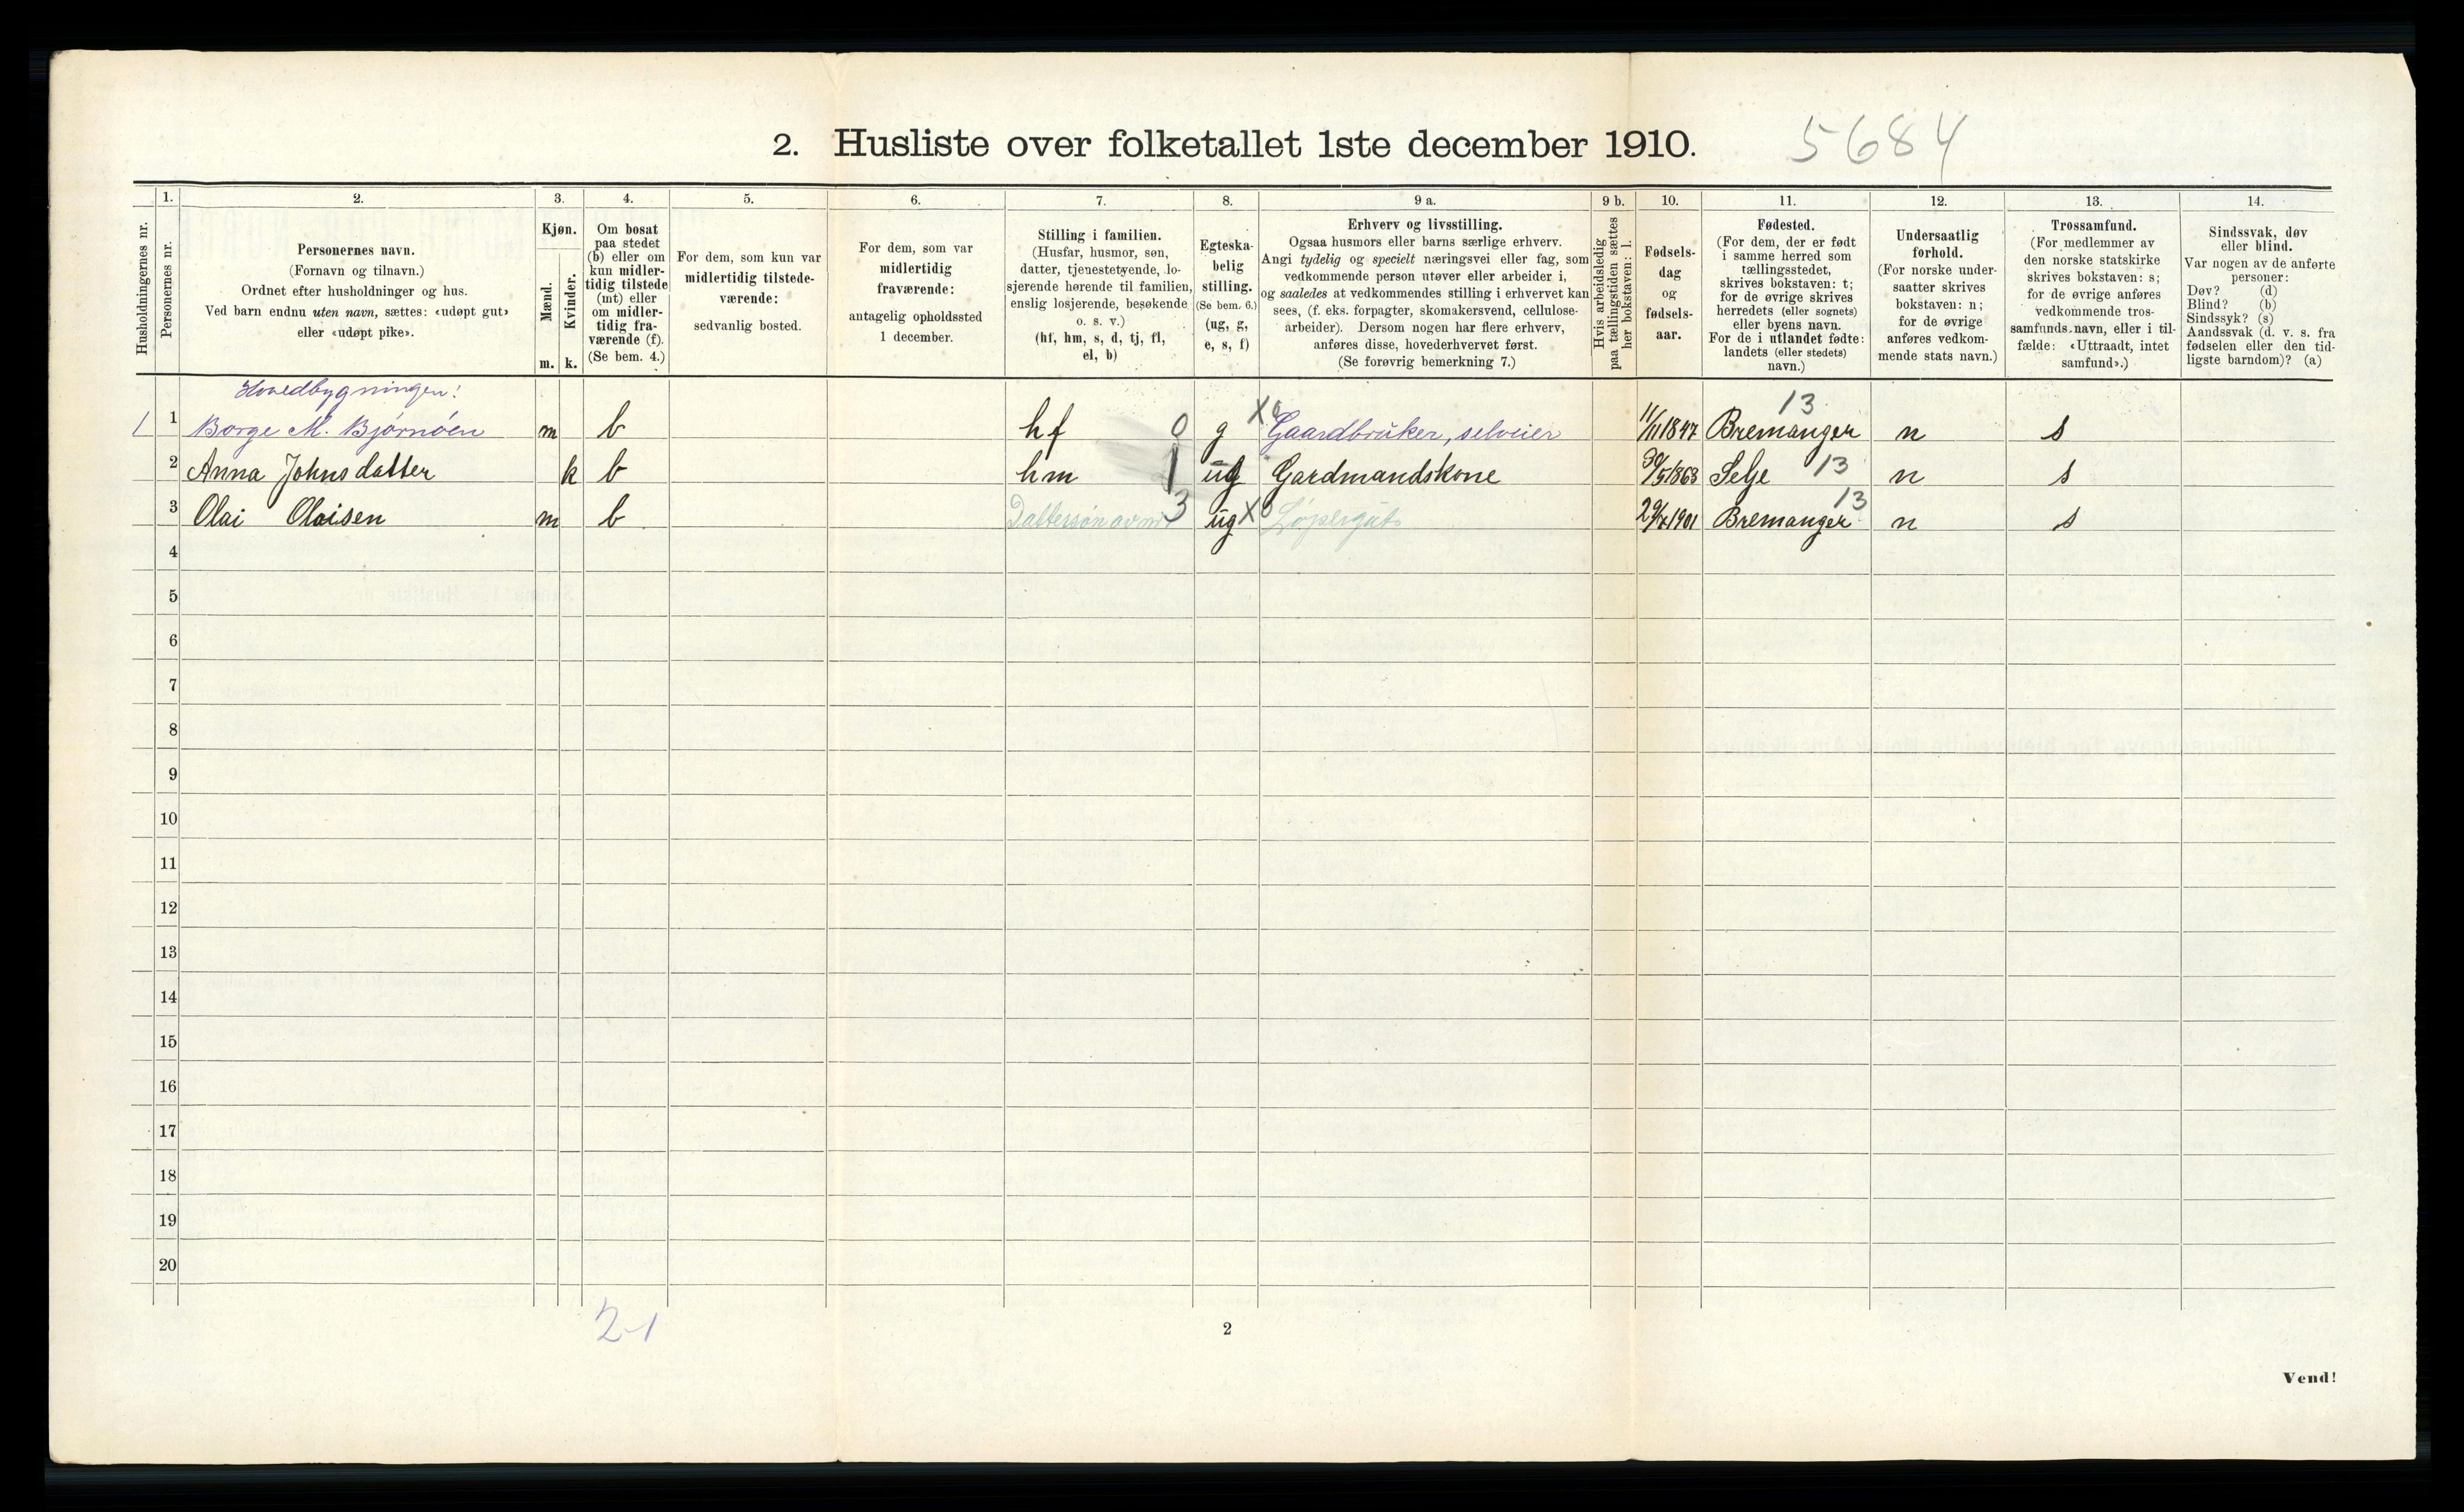 2. Husliste over folketallet 1ste december 1910.
5684
Husholdningernes nr.
1.
Personernes nr.
2.
Personernes navn.
(Fornavn og tilnavn.)
Ordnet efter husholdninger og hus.
Ved barn endnu uten navn, sættes: «udøpt gut»
eller «udøpt pike».
3.
Kjøn.
Mænd.
Kvinder.
m. k.
4.
Om bosat
paa stedet
(b) eller om
kun midler-
tidig tilstede
(mt) eller
om midler-
tidig fra-
værende (f).
(Se bem. 4.)
5.
For dem, som kun var
midlertidig tilstede-
værende:
sedvanlig bosted.
6.
For dem, som var
midlertidig
fraværende:
antagelig opholdssted
1 december.
7.
Stilling i familien.
(Husfar, husmor, søn,
datter, tjenestetyende, lo-
sjerende hørende til familien,
enslig losjerende, besøkende
o. s. v.)
(hf, hm, s, d, tj, fl,
el, b)
8.
Egteska-
belig
stilling.
(Se bem. 6.)
(ug, g,
e, s, f)
9 a.
Erhverv og livsstilling.
Ogsaa husmors eller barns særlige erhverv.
Angi tydelig og specielt næringsvei eller fag, som
vedkommende person utøver eller arbeider i,
og saaledes at vedkommendes stilling i erhvervet kan
sees, (f. eks. forpagter, skomakersvend, cellulose-
arbeider). Dersom nogen har flere erhverv,
anføres disse, hovederhvervet først.
(Se forøvrig bemerkning 7.)
9 b.
Hvis arbeidsledig
paa tællingstiden sættes
her bokstaven: l.
10.
Fødsels-
dag
og
fødsels-
aar.
11.
Fødested.
(For dem, der er født
i samme herred som
tællingsstedet,
skrives bokstaven: t;
for de øvrige skrives
herredets (eller sognets)
eller byens navn.
For de i utlandet fødte:
landets (eller stedets)
navn.)
12.
Undersaatlig
forhold.
(For norske under-
saatter skrives
bokstaven: n;
for de øvrige
anføres vedkom-
mende stats navn.)
13.
Trossamfund.
(For medlemmer av
den norske statskirke
skrives bokstaven: s;
for de øvrige anføres
vedkommende tros-
samfunds navn, eller i til-
fælde: «Uttraadt, intet
samfund».)
14.
Sindssvak, døv
eller blind.
Var nogen av de anførte
personer:
Døv? (d)
Blind? (b)
Sindssyk? (s)
Aandssvak (d. v. s. fra
fødselen eller den tid-
ligste barndom)? (a)
Hovedbygningen:
1 1 Børge M. Bjørnöen m b hf 0 g X0 Gaardbruker, selveier 11/11 1847 Bremanger 13 n s
2 Anna Johnsdatter k b hm 1 g Gardmandskone 30/5 1863 Selje 13 n s
3 Olai Olaisen m b Dattersøn av 3 ug X0 Løpergut 1901 Bremanger 13 n s
4
5
6
7
8
9
10
11
12
13
14
15
16
17
18
19
20
2-1
2
Vend!